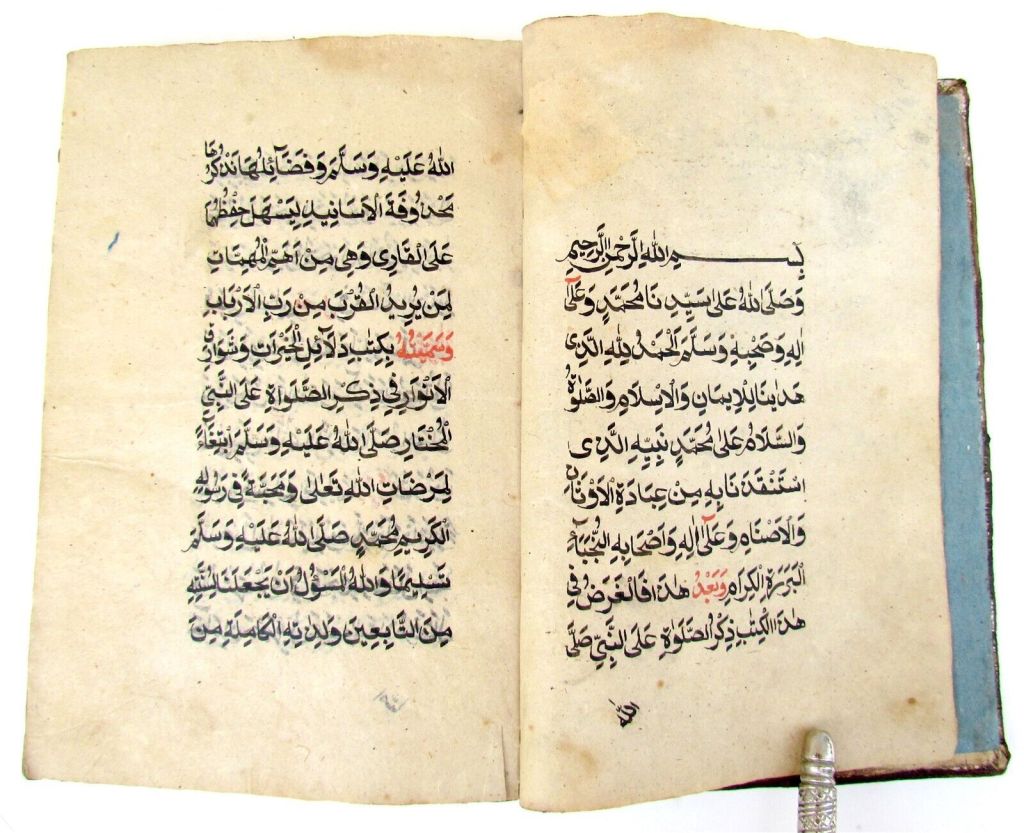 بِسْــــمِ اللّٰهِ الرَّحْمٰنِ الرَّحِيْمِ
وَصَلَّى اللّٰهُ عَلٰى سَيِّدِنَا مُحَمَّدٍ وَعَلٰٓى
اٰلِهٖ وَصَحْبِهٖ وَسَلَّمَ اَلْحَمْدُ لِلّٰهِ الَّذِى
هَدٰىنَا لِلْاِيمَانِ وَالْاِسْلَامِ وَالصَّلٰوةُ
وَالسَّلَامُ عَلٰى مُحَمَّدٍ نَبِيِّهِ الَّذِى
اسْتَنْقَذَنَا بِهٖ مِنْ عِبَادَةِ الْاَوْثَانِ
وَالْاَصْنَامِ وَعَلٰٓى اٰلِهٖ وَاَصْحَابِهِ النُّجَبَآءِ
الْبَرَرَةِ الْكِرَامِ وَبَعْدُ هٰذَا فَالْغَرَضُ فِى
هٰذَا الْكِتٰبِ ذِكْرُ الصَّلٰوةِ عَلَى النَّبِىِّ صَلَّى
اللّٰهُ
اللّٰهُ عَلَيْهِ وَسَلَّمَ وَفَضَآئِلُهَا نَذْكُرُهَا
مَحْذُوفَةَ الْاَسَانِيدِ لِيَسْهَلَ حِفْظُهَا
عَلَى الْقَارِى وَهِىَ مِنْ اَهَمِّ الْمُهِمَّاتِ
لِمَنْ يُرِيدُ الْقُرْبَ مِنْ رَبِّ الْاَرْبَابِ
وَسَمَّيْتُهُ بِكِتٰبِ دَلَآئِلِ الْخَيْرَاتِ وَشَوَارِقِ
الْاَنْوَارِ فِى ذِكْرِ الصَّلَوَاةِ عَلَى النَّبِىِّ
الْمُخْتَارِ صَلَّى اللّٰهُ عَلَيْهِ وَسَلَّمَ ابْتِغَآءً
لِمَرْضَاتِ اللّٰهِ تَعَالٰى وَمَحَبَّةً فِى رَسُولِهِ
الْكَرِيمِ مُحَمَّدٍ صَلَّى اللّٰهُ عَلَيْهِ وَسَلَّمَ
تَسْلِيمًا وَاللّٰهُ الْمَسْؤُلُ اَنْ يَجْعَلَنَا لِسُنَّتِهِ
مِنَ التَّابِعِينَ وَلِذَاتِهِ الْكَامِلَةِ مِنَ